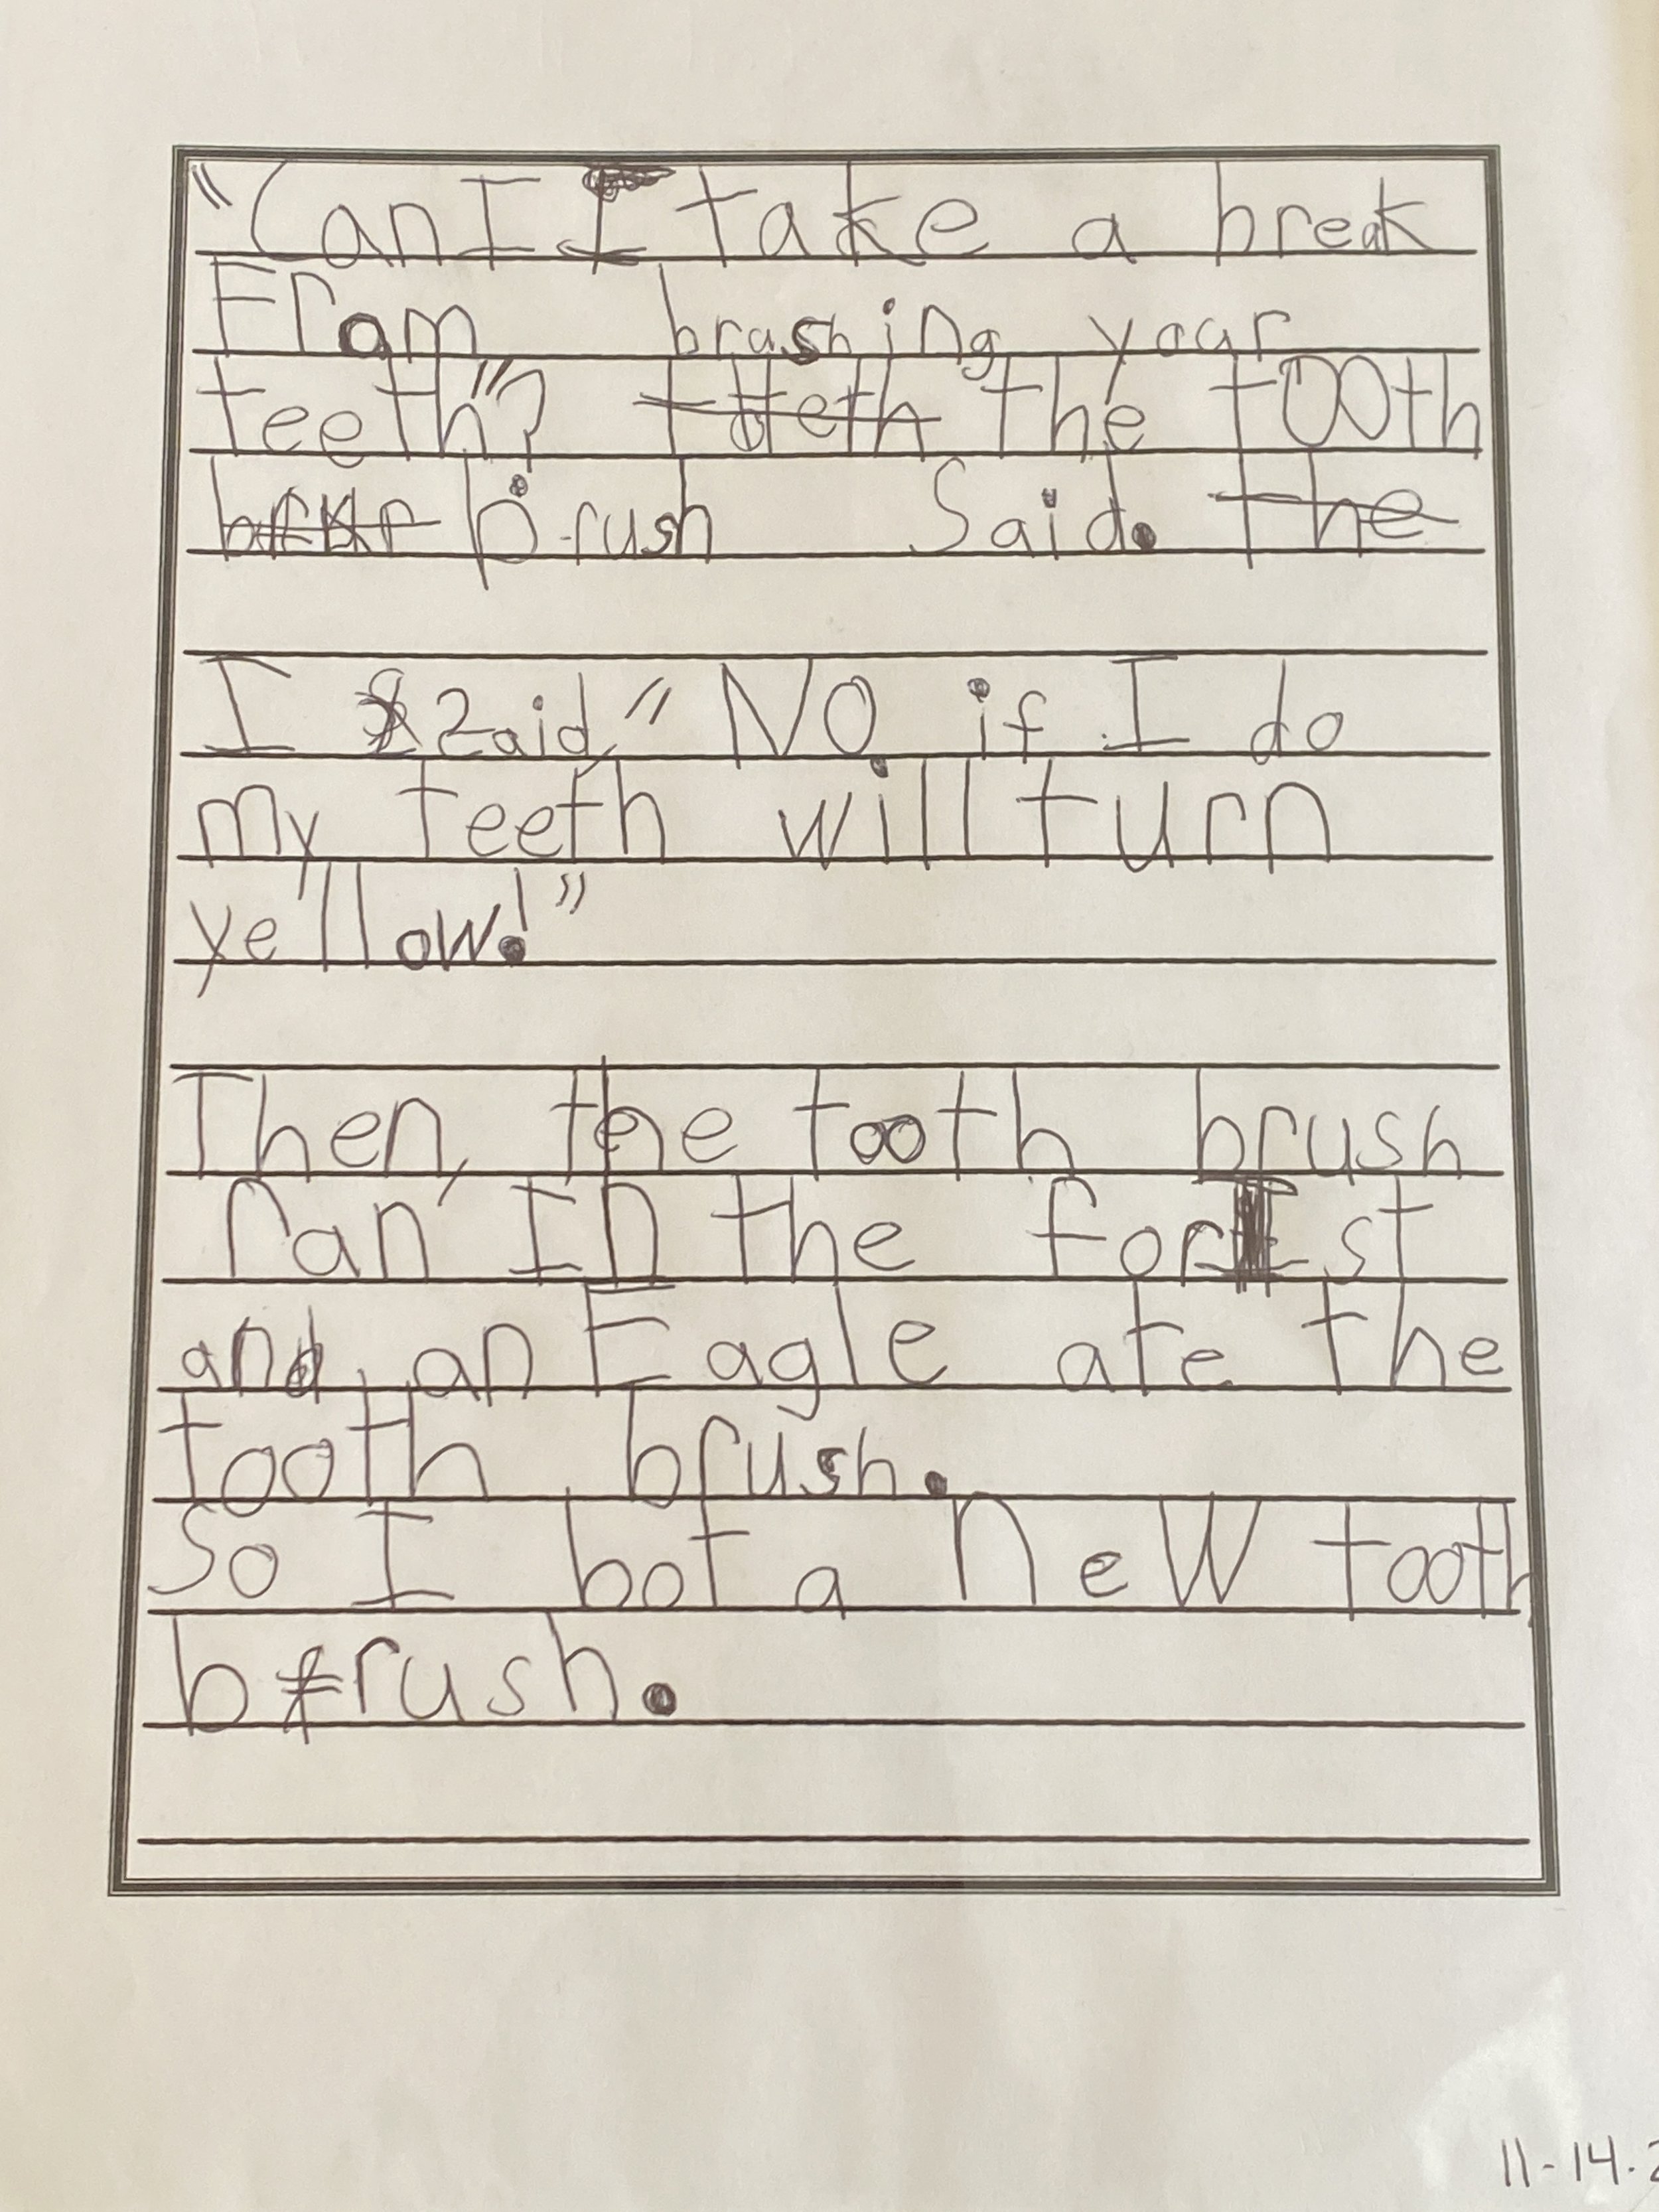 "Can I I take a break
From brashing year
teeth"? toteth the tooth
brush Said. the
I Said," No if I do
my teeth will turn
yellow!"
Then, the tooth brush
ran In the forIst
and an Eagle ate the
tooth brush.
So I bot a New tooth
brush.
11-14.2